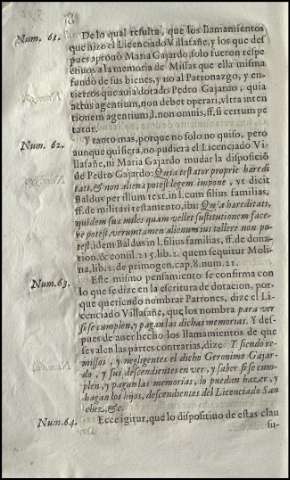 Num. 61. De lo qual resulta, que los llamamientos
que hizo el Licenciado Villafañe, y los que des
pues aprouò Maria Gajardo, solo fueron respe
ctiuos a la memoria de Missas que ella misma
fundo de sus bienes, y no al Patronazgo, y en-
tierros que auia dotado Pedro Gajardo, quia
actus agentium, non debet operari, vltra inten
tionem agentium, l. non omnis, ff. si certum pe
tatur.
Num. 62. Y tanto mas, porque no solo no quiso, pero
aunque quisiera, no pudiera el Licenciado Vi-
llafañe, ni Maria Gajardo mudar la disposiciō
de Pedro Gajardo: Quia testator propriæ haredi
tati, & non aliena potest legem impone, vt dicit
Baldus per illum text. in l. cum filius familias,
ff. de militari testamento, ibi: Quia hareditati,
quidem sua miles quam vellet sustitutionem face-
re potest, veruntamen alienum ius tollere non po-
test, idem Baldus in l. filius familias, ff. de dona-
tion. & consil. 215. lib. 2. quem sequitur Moli-
na, lib. 1. de primogen. cap. 8. num. 21.
Num. 63. Este mismo pensamiento se confirma con
lo que se dize en la escritura de dotacion, por-
que queriendo nombrar Patrones, dize el Li-
cenciado Villafañe, que los nombra para ver
si se cumplen, y pagan las dichas memorias. Y des-
pues de auer hecho los llamamientos de que
se valen las partes contrarias, dize: Y siendo re-
missos, y negligentes el dicho Geronimo Gajar-
do, y sus descendientes en ver, y saber si se cum-
plen, y pagan las memorias, lo puedan hazer, y
hagan los hijos, descendientes del Licenciado San
chez, &c.
Num. 64. Ecce igitur, que lo dispositiuo de estas clau
su-